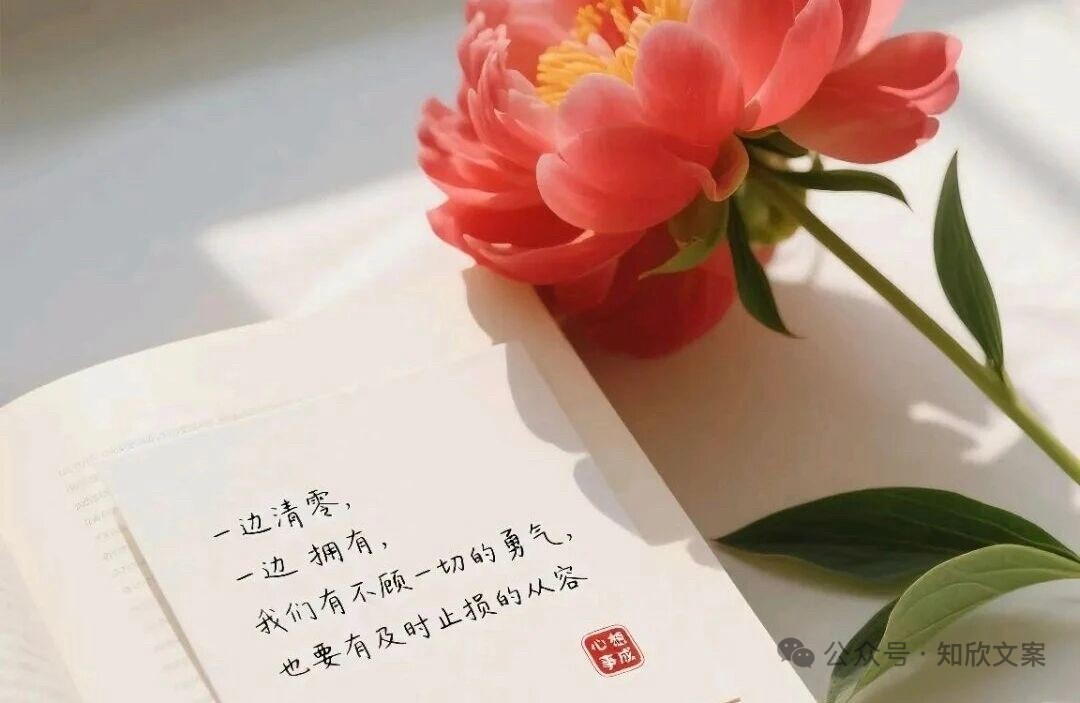 一边清零，
一边拥有，
我们有不顾一切的勇气，
也要有及时止损的从容
心想
事成
公众号·知欣文案